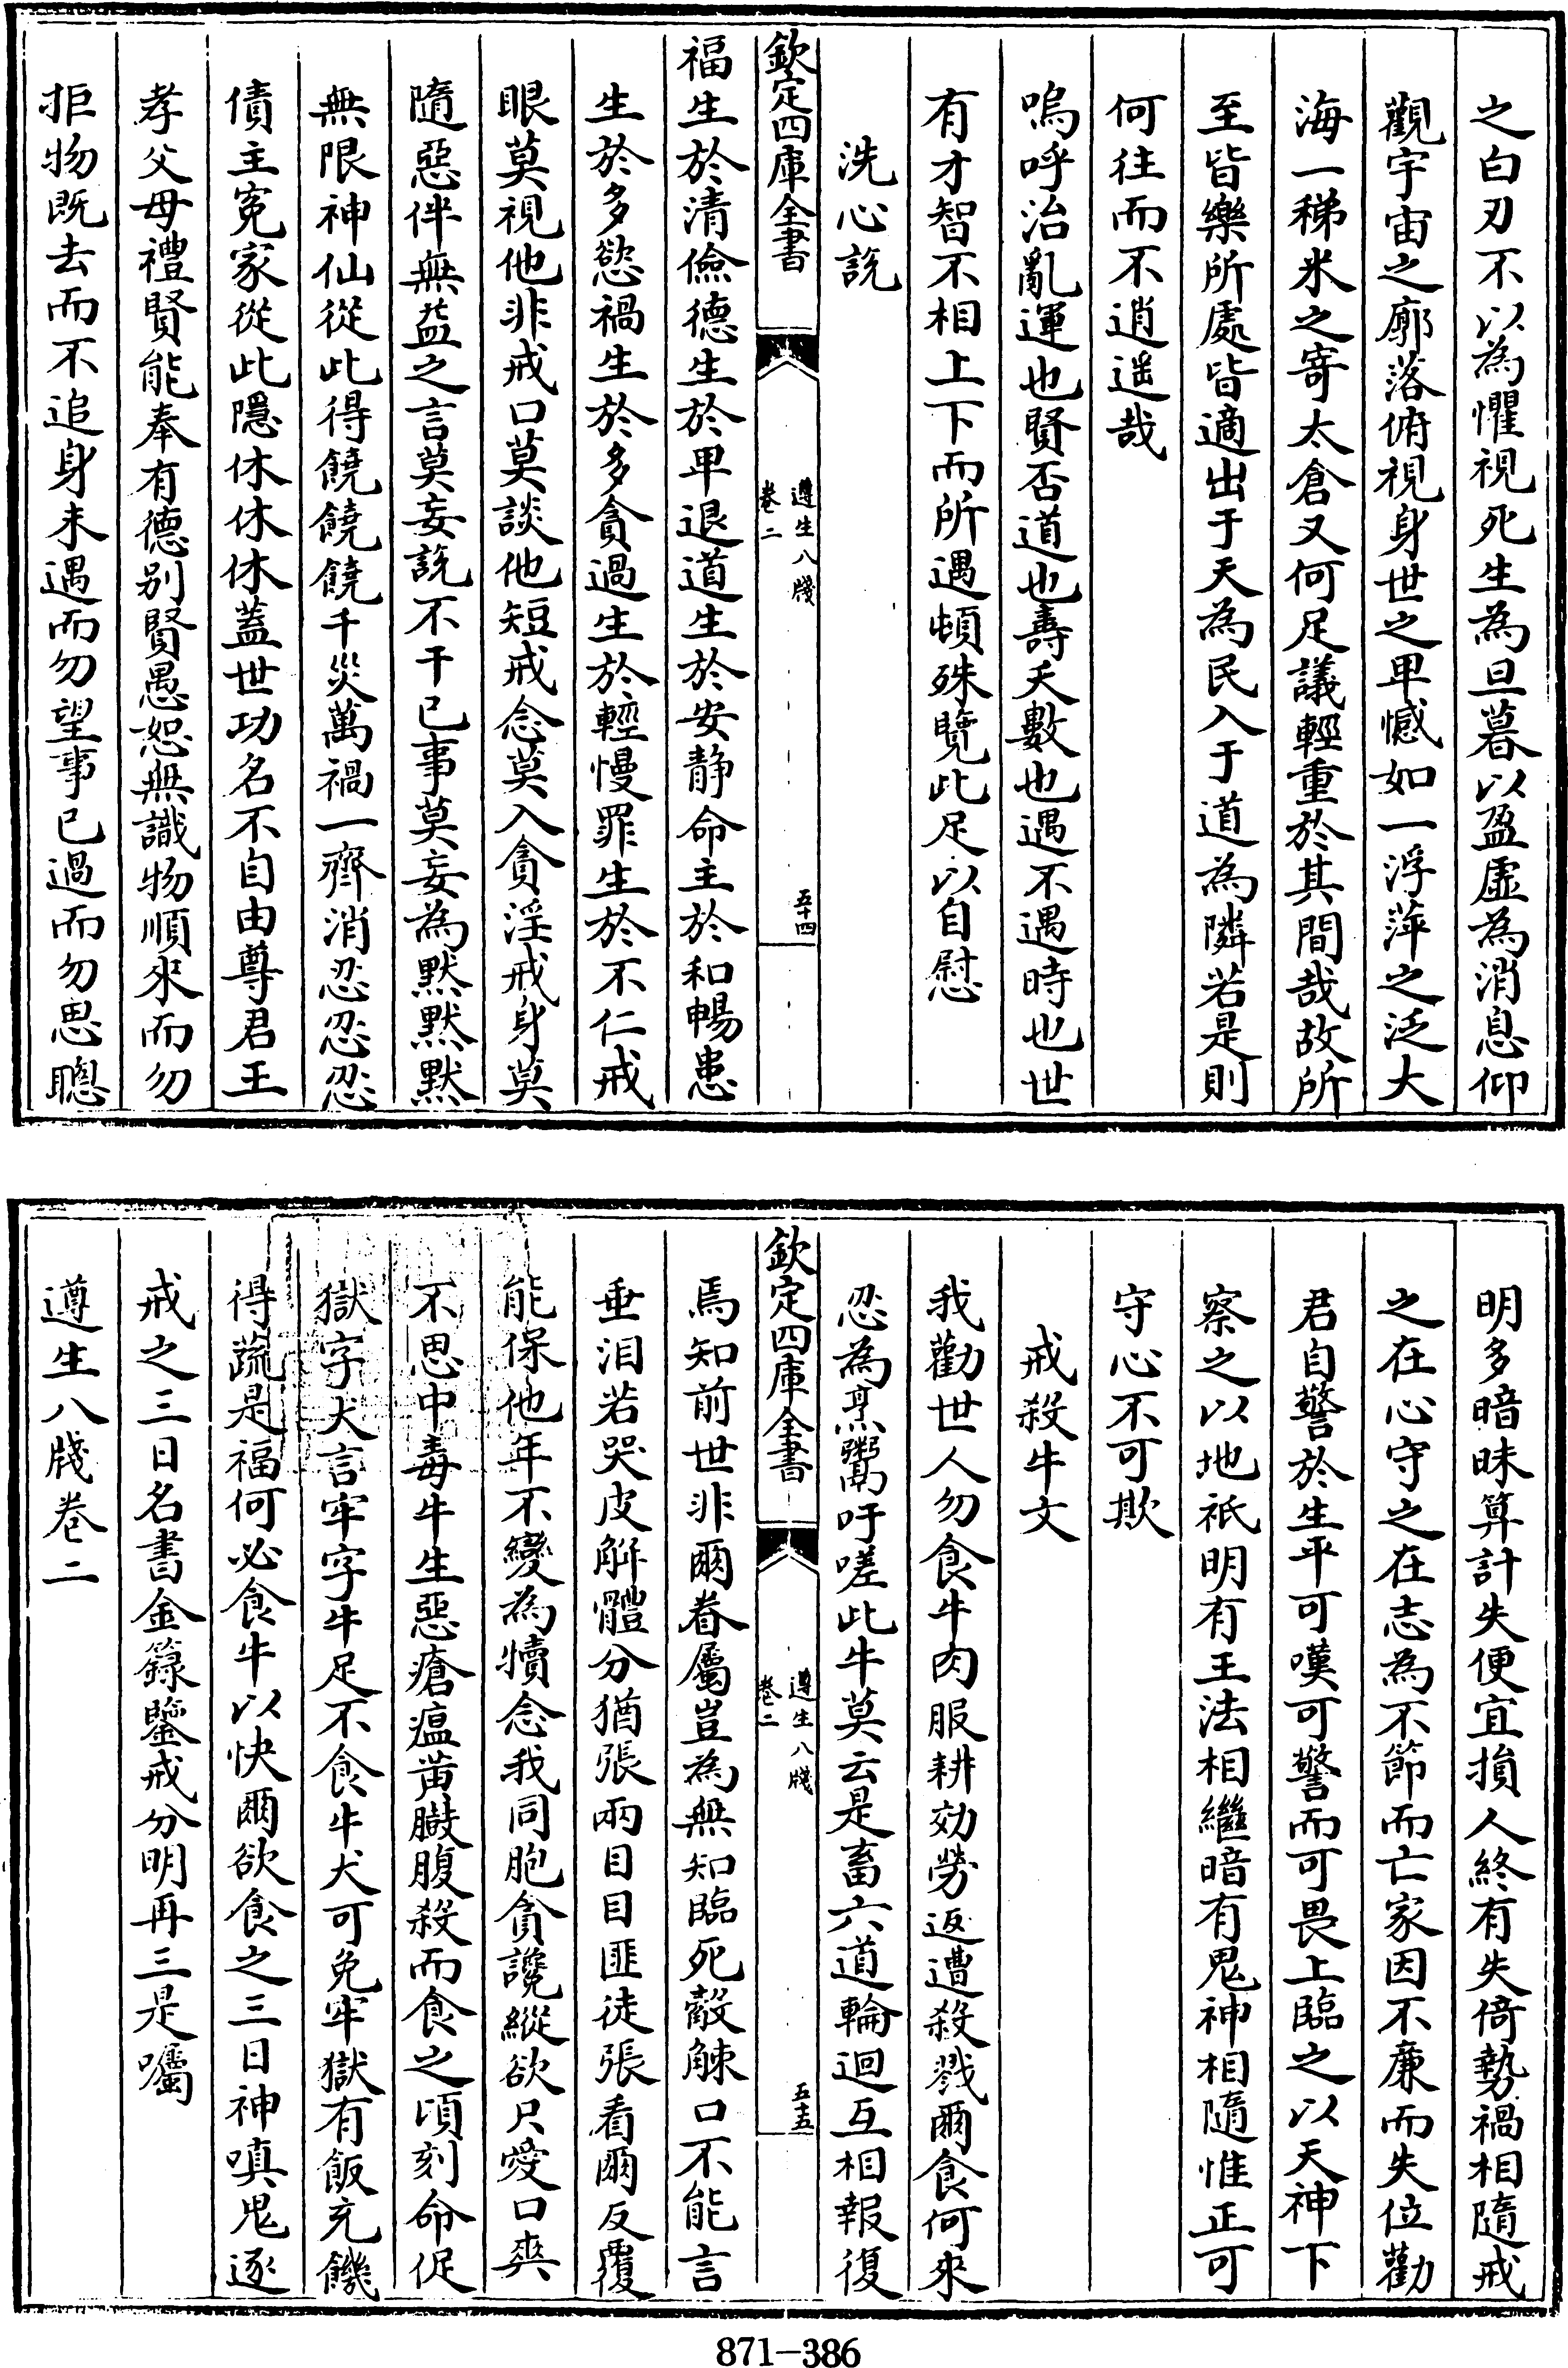 之白刃不以為懼視死生為旦暮以盈虛為消息仰
觀宇宙之廓落俯視身世之卑憾如一浮萍之泛大
海一稊米之寄太倉又何足議輕重於其間哉故所
至皆樂所處皆適出于天為民入于道為隣若是則
何往而不逍遥哉
嗚呼治亂運也賢否道也壽夭數也遇不遇時也世
有才智不相上下而所遇頓殊覽此足以自慰
洗心説
欽定四庫全書
遵生八牋
卷二
五十四
福生於清儉德生於卑退道生於安静命主於和暢患
生於多慾禍生於多貪過生於輕慢罪生於不仁戒
眼莫視他非戒口莫談他短戒念莫入貪淫戒身莫
隨惡伴無益之言莫妄説不干已事莫妄為黙黙黙
無限神仙從此得饒饒饒千災萬禍一齊消忍忍忍
債主寃家從此隱休休休蓋世功名不自由尊君王
孝父母禮賢能奉有德别賢愚恕無識物順來而勿
拒物既去而不追身未遇而勿望事已過而勿思聰
明多暗昧算計失便宜損人終有失倚勢禍相隨戒
之在心守之在志為不節而亡家因不廉而失位勸
君自警於生平可嘆可警而可畏上臨之以天神下
察之以地祇明有王法相繼暗有鬼神相隨惟正可
守心不可欺
戒殺牛文
我勸世人勿食牛肉服耕効勞返遭殺戮爾食何來
忍為烹鬻吁嗟此牛莫云是畜六道輪迴互相報復
欽定四庫全書
遵生八牋
卷二
五十五
焉知前世非爾眷屬豈為無知臨死觳觫口不能言
垂泪若哭皮觧體分猶張兩目目匪徒張看爾反覆
能保他年不變為犢念我同胞貪讒縱欲只愛口爽
不思中毒牛生惡瘡瘟黄臌腹殺而食之頃刻命促
獄字犬言牢字牛足不食牛犬可免牢獄有飯充饑
得蔬是福何必食牛以快爾欲食之三日神嗔鬼逐
戒之三日名書金籙鑒戒分明再三是囑
遵生八牋卷二
871-386